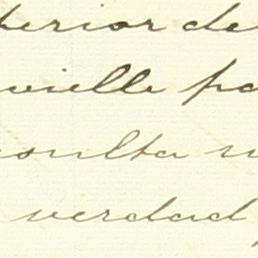 perior de
vielle pa
sulta
verdad